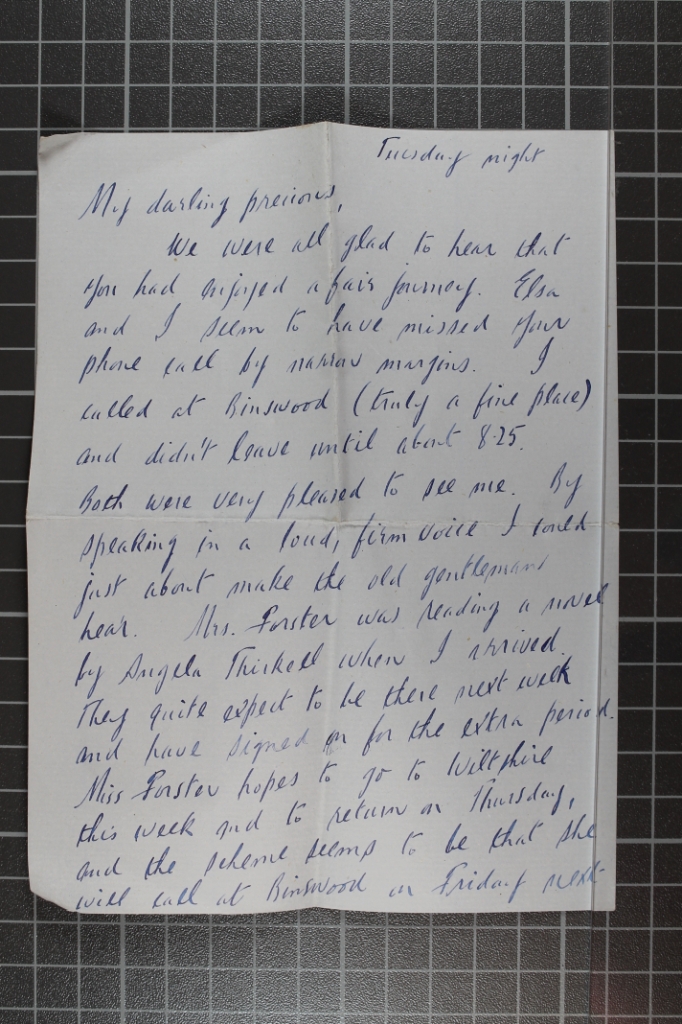 Tuesday night
My darling precious,
We were all glad to hear that
you had enjoyed a fair journey. Elsa
and I seem to have missed your
phone call by narrow margins. I
called at Binswood (truly a fine place)
and didn't leave until about 8.25.
Both were very pleased to see me. By
speaking in a loud, firm voice I could
just about make the old gentleman
hear. Mrs. Forster was reading a novel
by Angela Thirkell when I arrived.
They quite expect to be there next week
and have signed on for the extra period.
Miss Forster hopes to go to Wiltshire
this week and to return on Thursday,
and the scheme seems to be that she
will call at Binswood on Friday next